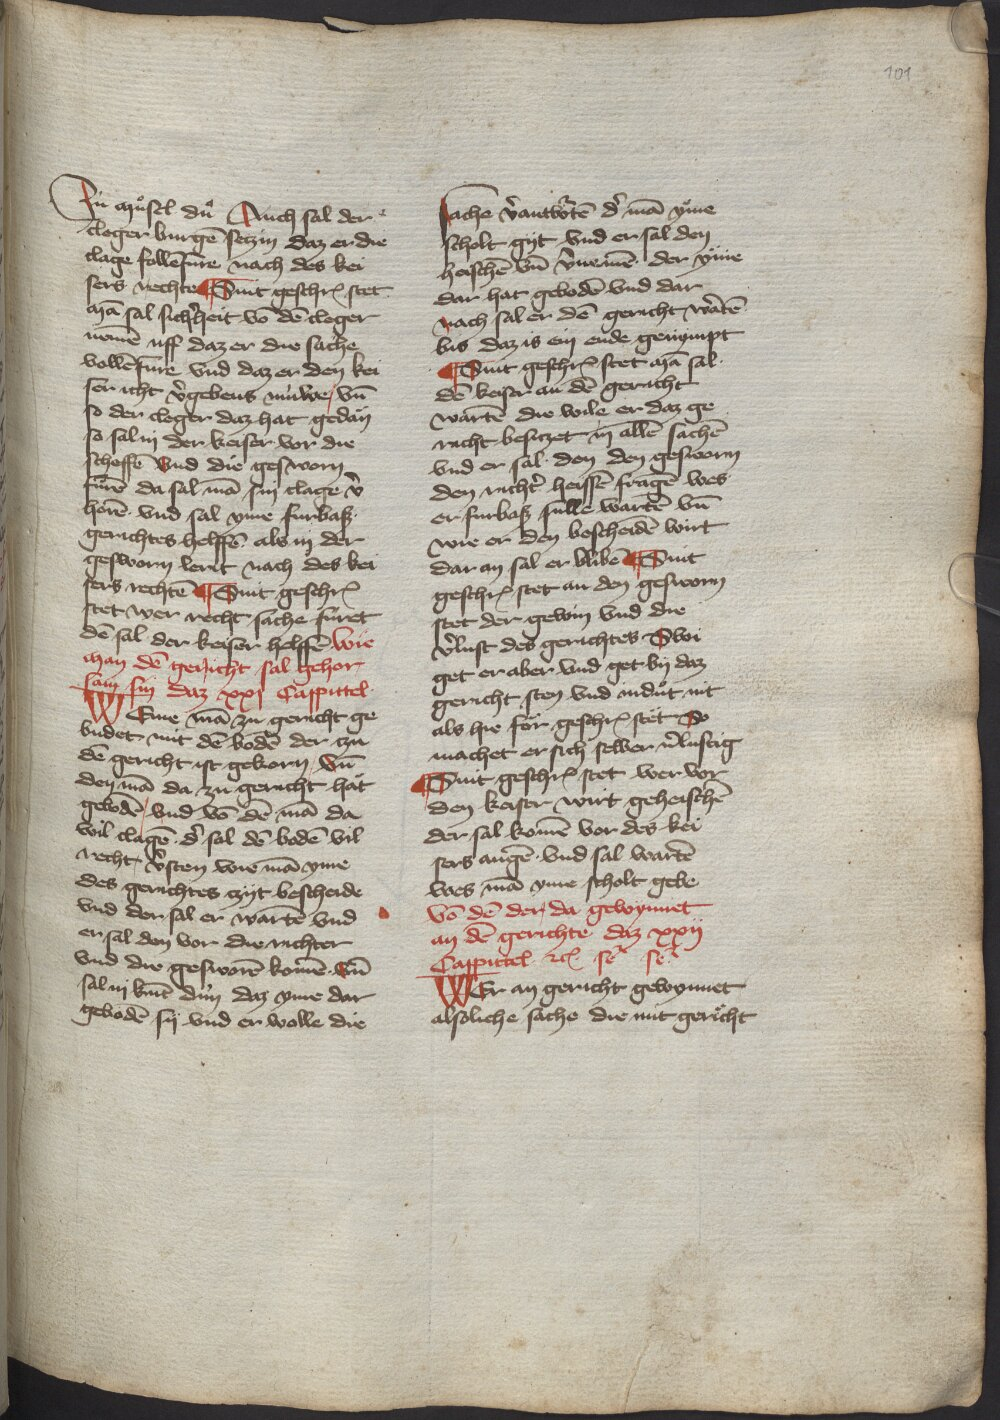 101
Ein muͦsel duͦ Auch sal der
cleger burgē setzin daz er die
clage follēfure nach des kei
sers rechte Suit geschr̄ stet
mā sal sich̛heit vō dē cleger
nemē uff daz er die sache
vollēfure vnd daz er den kei
ser icht v̛gebens muͤwe vn̄
so der cleger daz hat gedan
so sal in der keiser vor die
scheffē vnd die gesworn
furē da sal mā sin clage v̛
horē vnd sal yme furbaß
gerichtes helffē als in der
gesworn leret nach des kei
sers rechtē Suit geschr̄
stet wer recht sache furet
dē sal der keiser helffē Wie
man dē gericht sal gehor
sam sin daz xxj Cappittel
WEme mā zu gericht ge
budet mit dē bodē der zu
dē gericht ist gekorn vn̄
den mā da zu gericht hat
gebodē vnd vō dē mā da
wil clagē d̛ sal dē bodē vil
recht v̛sten wie mā yme
des gerichtes zijt bescheide
vnd der sal er wartē vnd
er sal den vor die richter
vnd die gesworē komē vn̄
sal in kūt dun daz yme dar
gebodē sij vnd er wolle die
sache v̛antw̛tē d̛ mā yme
scholt gijt vnd er sal den
heischē vn̄ v̛nemē der yme
dar hat gebodē vnd dar
nach sal er dē gericht w̛atē
bis daz is ein ende genympt
Suit geschr̄ stet mā sal
dē keiser an dē gericht
wartē die wile er daz ge
richt besitzet in allē sachē
vnd er sal den den gesworn
den richt̛ heissē fragē wes
er furbaß sulle wartē vn̄
wie er den bescheidē wirt
dar an sal er blibē Suit
geschr̄ stet an den gesworn
stet der gewin vnd die
v̛lust des gerichtes Swi
get er aber vnd get bij daz
gericht sten vnd induͦt nit
als hie for geschr̄ stet So
machet er sich selber v̛lustig
Suit geschr̄ stet wer vor
den keiser wirt geheischē
der sal komē vor des kei
sers augē vnd sal wartē
wes mā yme scholt gebe
Vō dē der da gewynnet
an dē gerichte daz xxij
Cappittel
WEr an gericht gewynnet
alsoliche sache die mit gericht